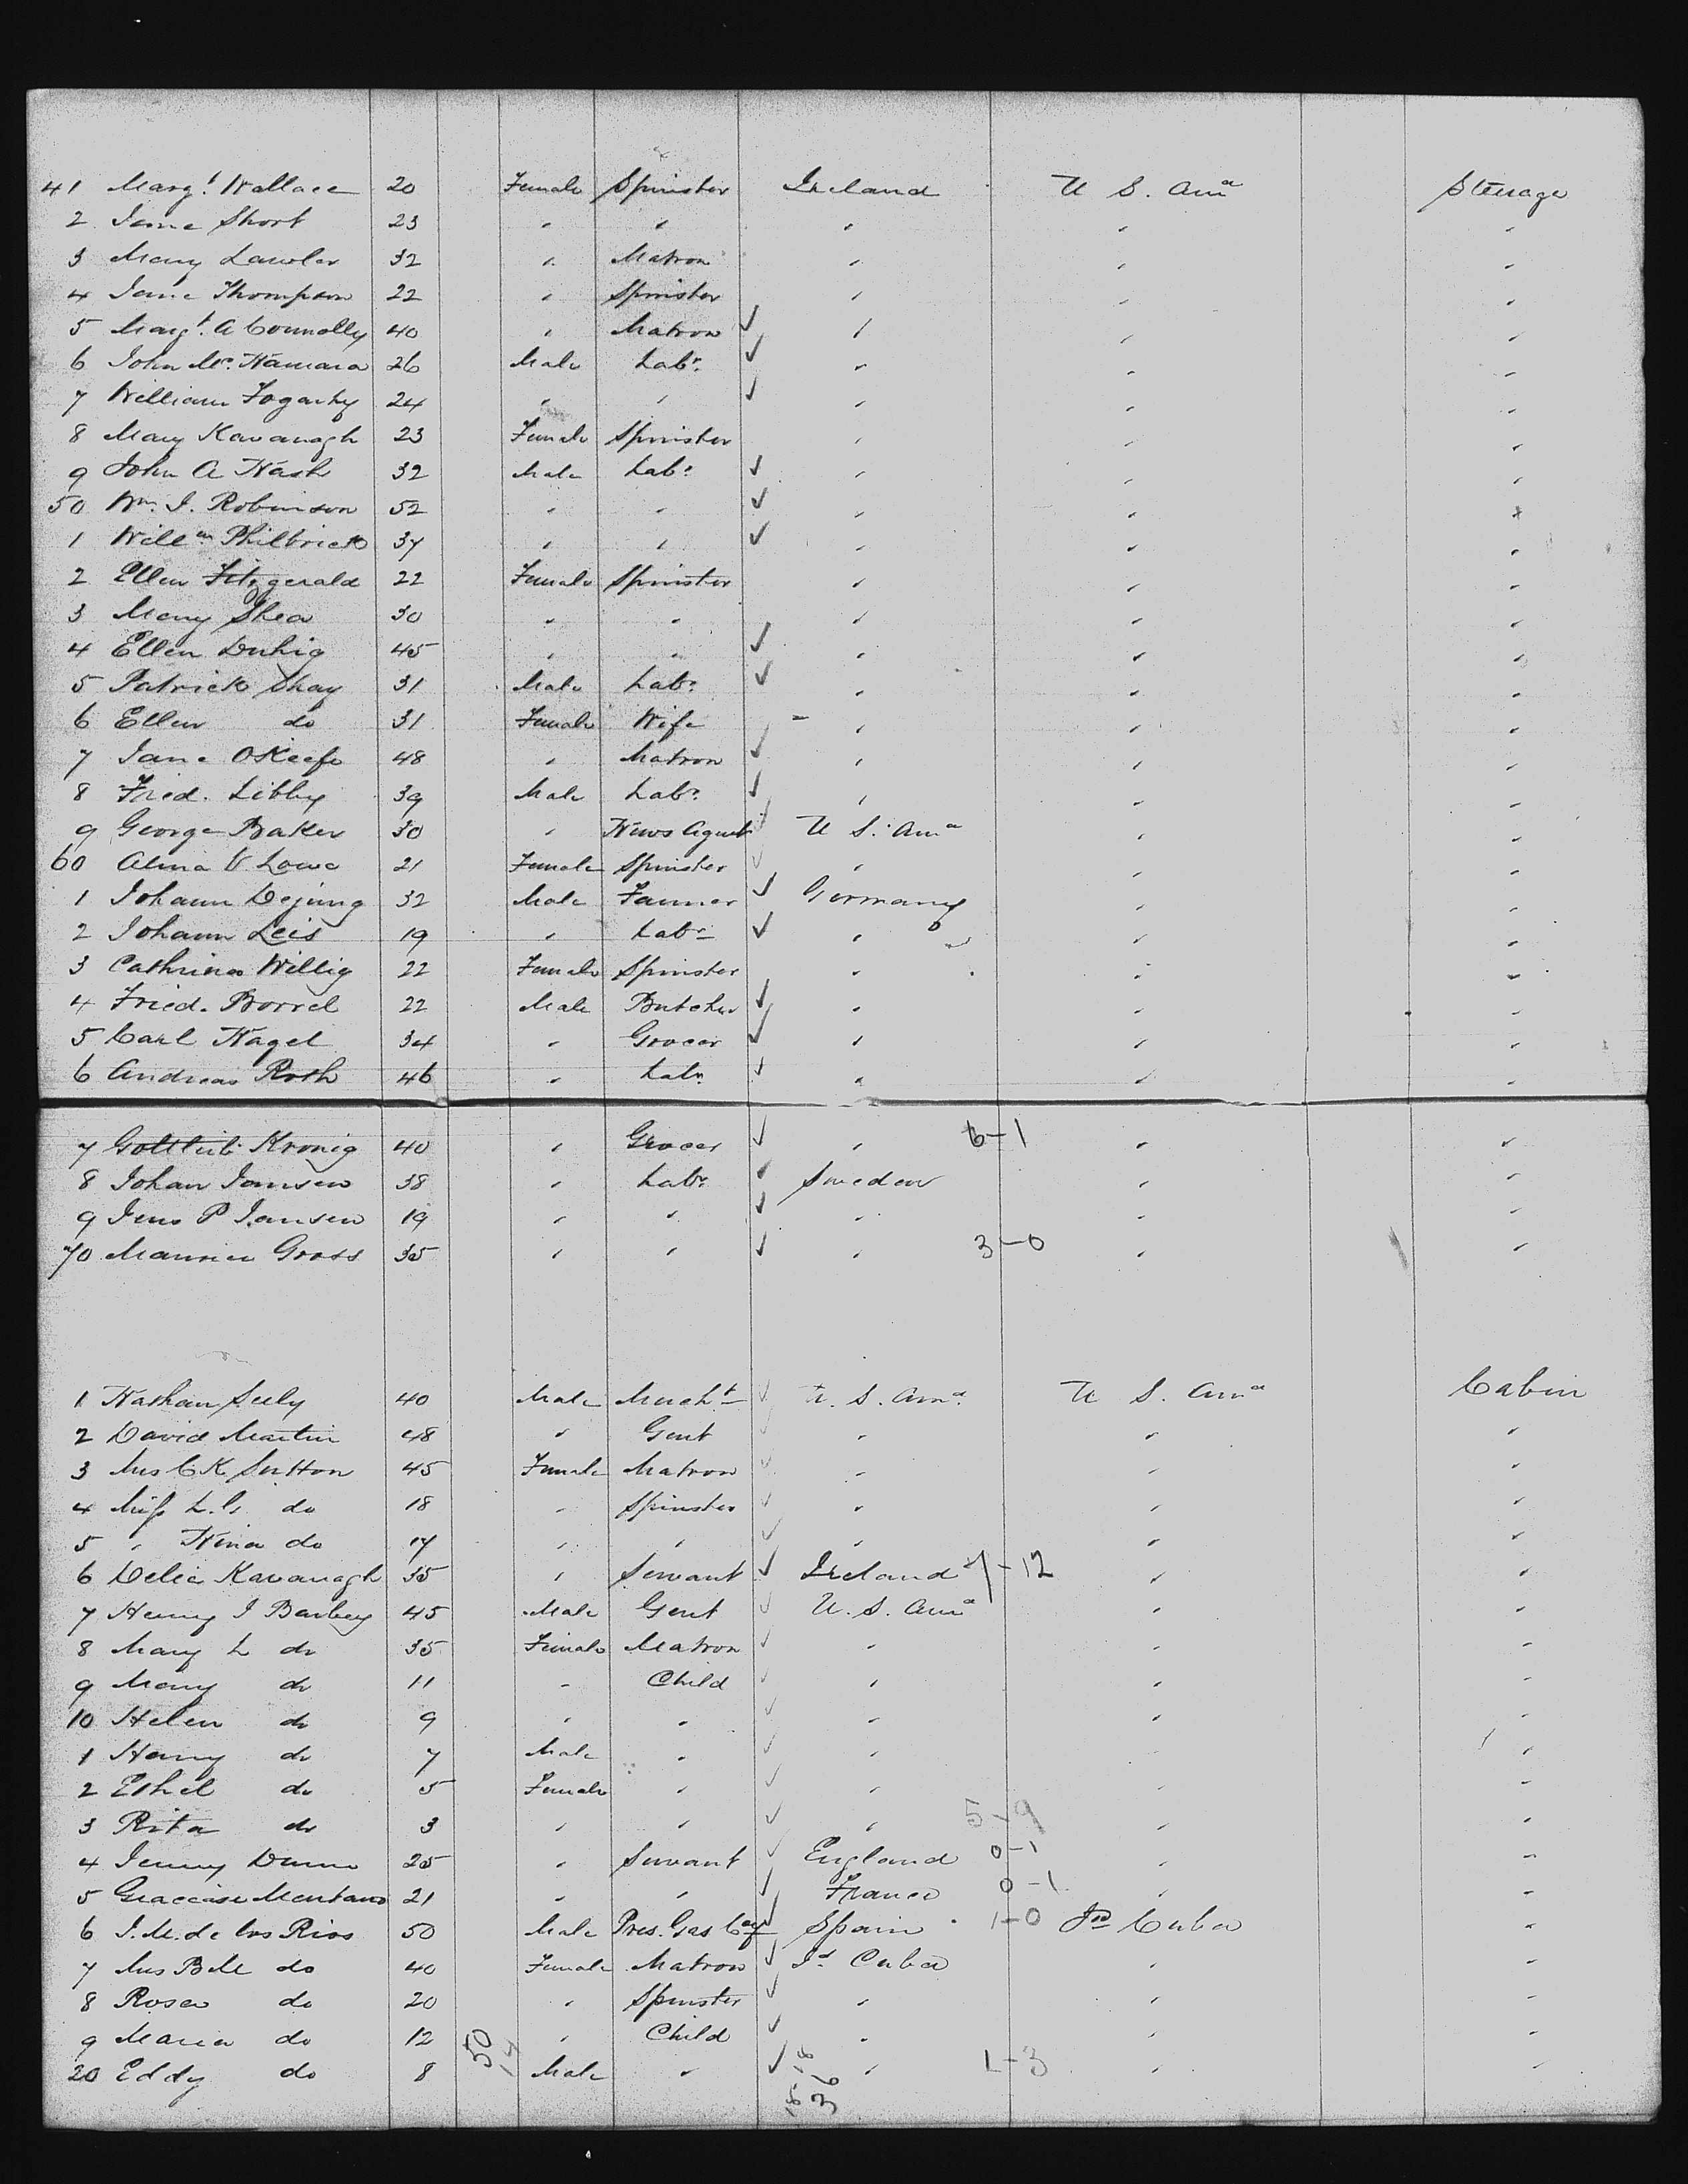 41 Margt. Wallace 20 Female Spinster Ireland U S. Ama Steerage
2 Jane Short 23 " " " " "
3 Mary Lawler 32 " Matron " " "
4 Jane Thompson 22 " Spinster " " "
5 Margt. A Connolly 40 " Matron ✓ " " "
6 John Mc. Namara 26 Male Labr. ✓ " " "
7 William Fogarty 24 " " ✓ " " "
8 Mary Kavanagh 23 Female Spinster " " "
9 John A Nash 32 Male Labr. ✓ " " "
50 Wm. J. Robinson 52 " " ✓ " " "
1 Willm Philbrick 37 " " ✓ " " "
2 Ellen Fitzgerald 22 Female Spinster " " "
3 Mary Shea 30 " " " " "
4 Ellen Duhig 45 " " ✓ " " "
5 Patrick Shay 31 Male Labr. ✓ " " "
6 Ellen do 31 Female Wife " " "
7 Jane OKeefe 48 " Matron ✓ " " "
8 Fried. Libby 39 Male Labr. ✓ " " "
9 George Baker 30 " News Agent ✓ U S. Ama " "
60 Alma V Lowe 21 Female Spinster ✓ " " "
1 Johann Dejung 32 Male Farmer ✓ Germany " "
2 Johann Leis 19 " Labr ✓ " " "
3 Cathrina Willig 22 Female Spinster " " "
4 Fried. Borrel 22 Male Butcher ✓ " " "
5 Carl Nagel 34 " Grocer ✓ " " "
6 Andreas Roth 46 " Labr. ✓ " " "
7 Gottlieb Kronig 40 " Grocer ✓ " 6-1 " "
8 Johan Jansen 38 " Labr. ✓ Sweden " "
9 Jens P Jansen 19 " " ✓ " " "
70 Maurice Gross 35 " " ✓ " 3-0 " "
1 Nathan Seely 40 Male Mercht ✓ U. S. Ama. U S. Ama Cabin
2 David Martin 48 " Gent ✓ " " "
3 Mrs C K Sutton 45 Female Matron ✓ " " "
4 Miss L. G. do 18 " Spinster ✓ " " "
5 " Nina do 17 " " ✓ " " "
6 Delia Kavanagh 35 " Servant ✓ Ireland -12 " "
7 Henry I Barbey 45 Male Gent ✓ U. S. Ama " "
8 Mary L do 35 Female Matron ✓ " " "
9 Mary do 11 " Child ✓ " " "
10 Helen do 9 " " ✓ " " "
1 Harry do 7 Male " ✓ " "
2 Ethel do 5 Female " ✓ " " "
3 Rita do 3 " " ✓ " 5-9 " "
4 Jenny Dunn 25 " Servant ✓ England 0-1 " "
5 Montano 21 " " ✓ France 0-1 " "
6 J. M. de los Rios 50 Male Pres. Gas Coy ✓ Spain 1-0 Cuba "
7 Mrs B M do 40 Female Matron ✓ Id Cuba " "
8 Rosa do 20 " Spinster ✓ " " "
9 Maria do 12 " Child ✓ " " "
20 Eddy do 8 Male " ✓ " 1-3 " "
50
14
18-18
36